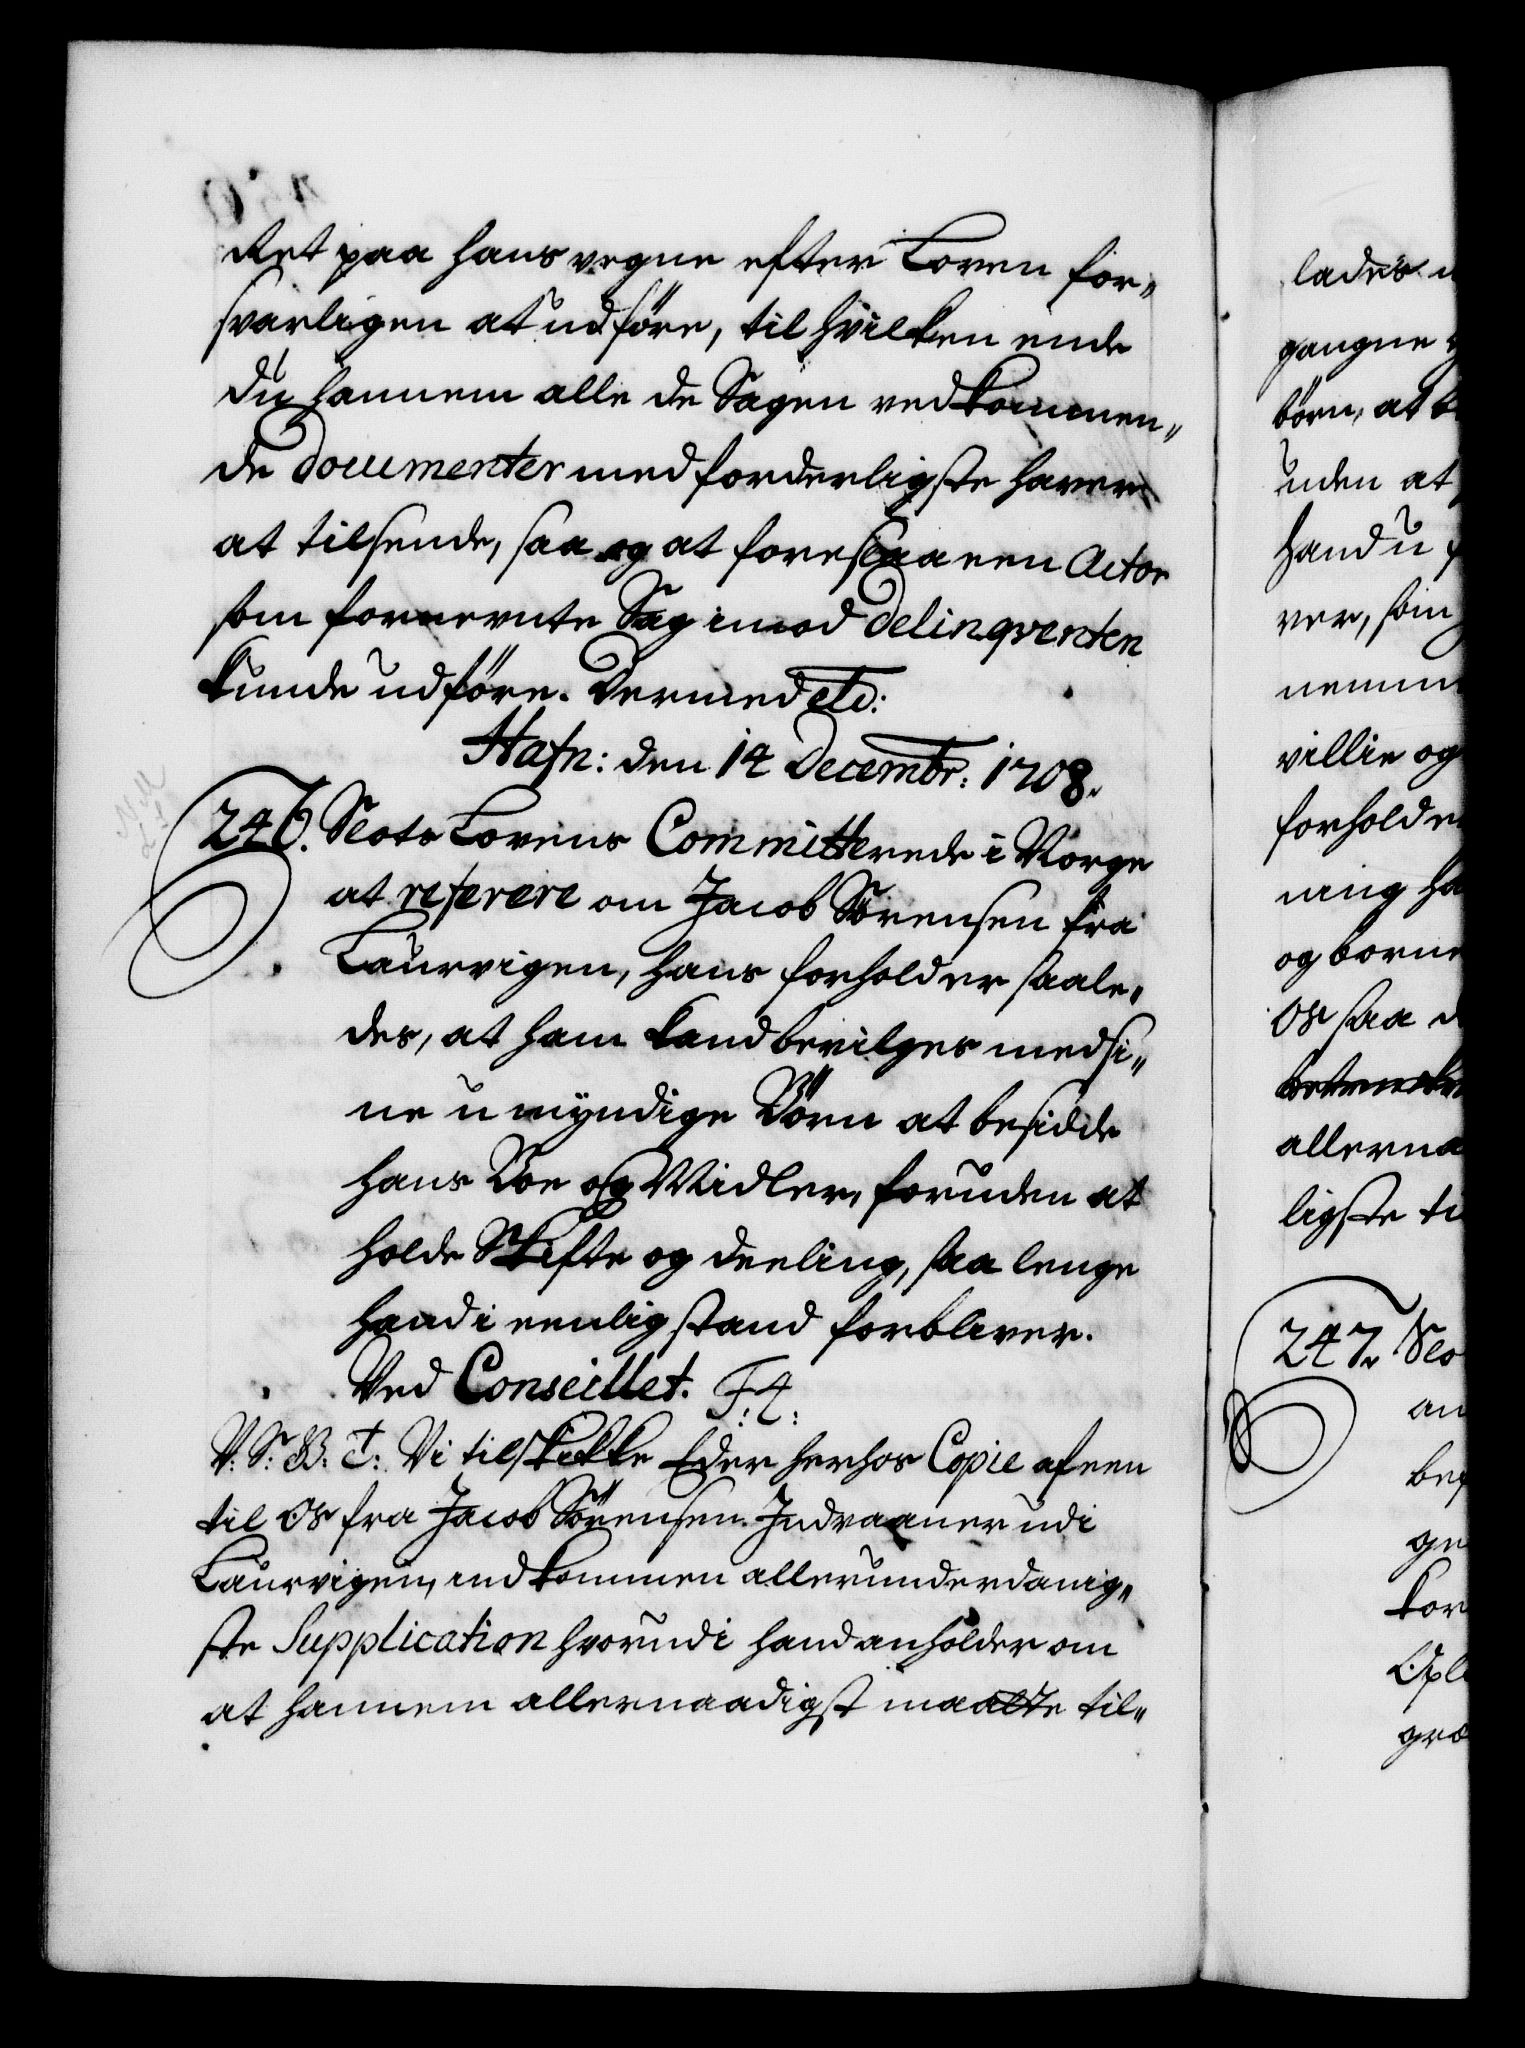 Ret paa hans vegne efter Loven for„
svarligen at udföre, til hvilken ende
du hannem alle de Sagen vedkommen„
de Documenter med forderligste haver
at tilsende, saa og at foreslaa een Actor
som fornevnte Sag imod Delinqventen
kunde udföre. Dermed etc:
Hafn: den 14 Decembr: 1708.
246. Slots Lovens Committerede i Norge
at referere om Jacob Sörensen fra
Laurvigen, hans forhold er saale„
des, at ham kand bevilges med si„
ne umyndige Börn at besidde
hans Boe og Midler, foruden at
holde Skifte og deeling, saa lenge
hand i eenlig stand forbliver.
Ved Conseillet. F. 4:
V: S: G: T: Vi tilskikke Eder herhos Copie af een
til Os fra Jacob Sörensen Indvaaner udi
Laurvigen, indkommen allerunderdanig„
ste Supplication hvorudi hand anholder om
at hannem allernaadigst maatte til„
lades
gangne
börn, at
uden at
hand u
ver, som
villie og
forhold
ning
og borne
Os saa
allerna
ligste ti
247. Slo
an
bef
ge
kor